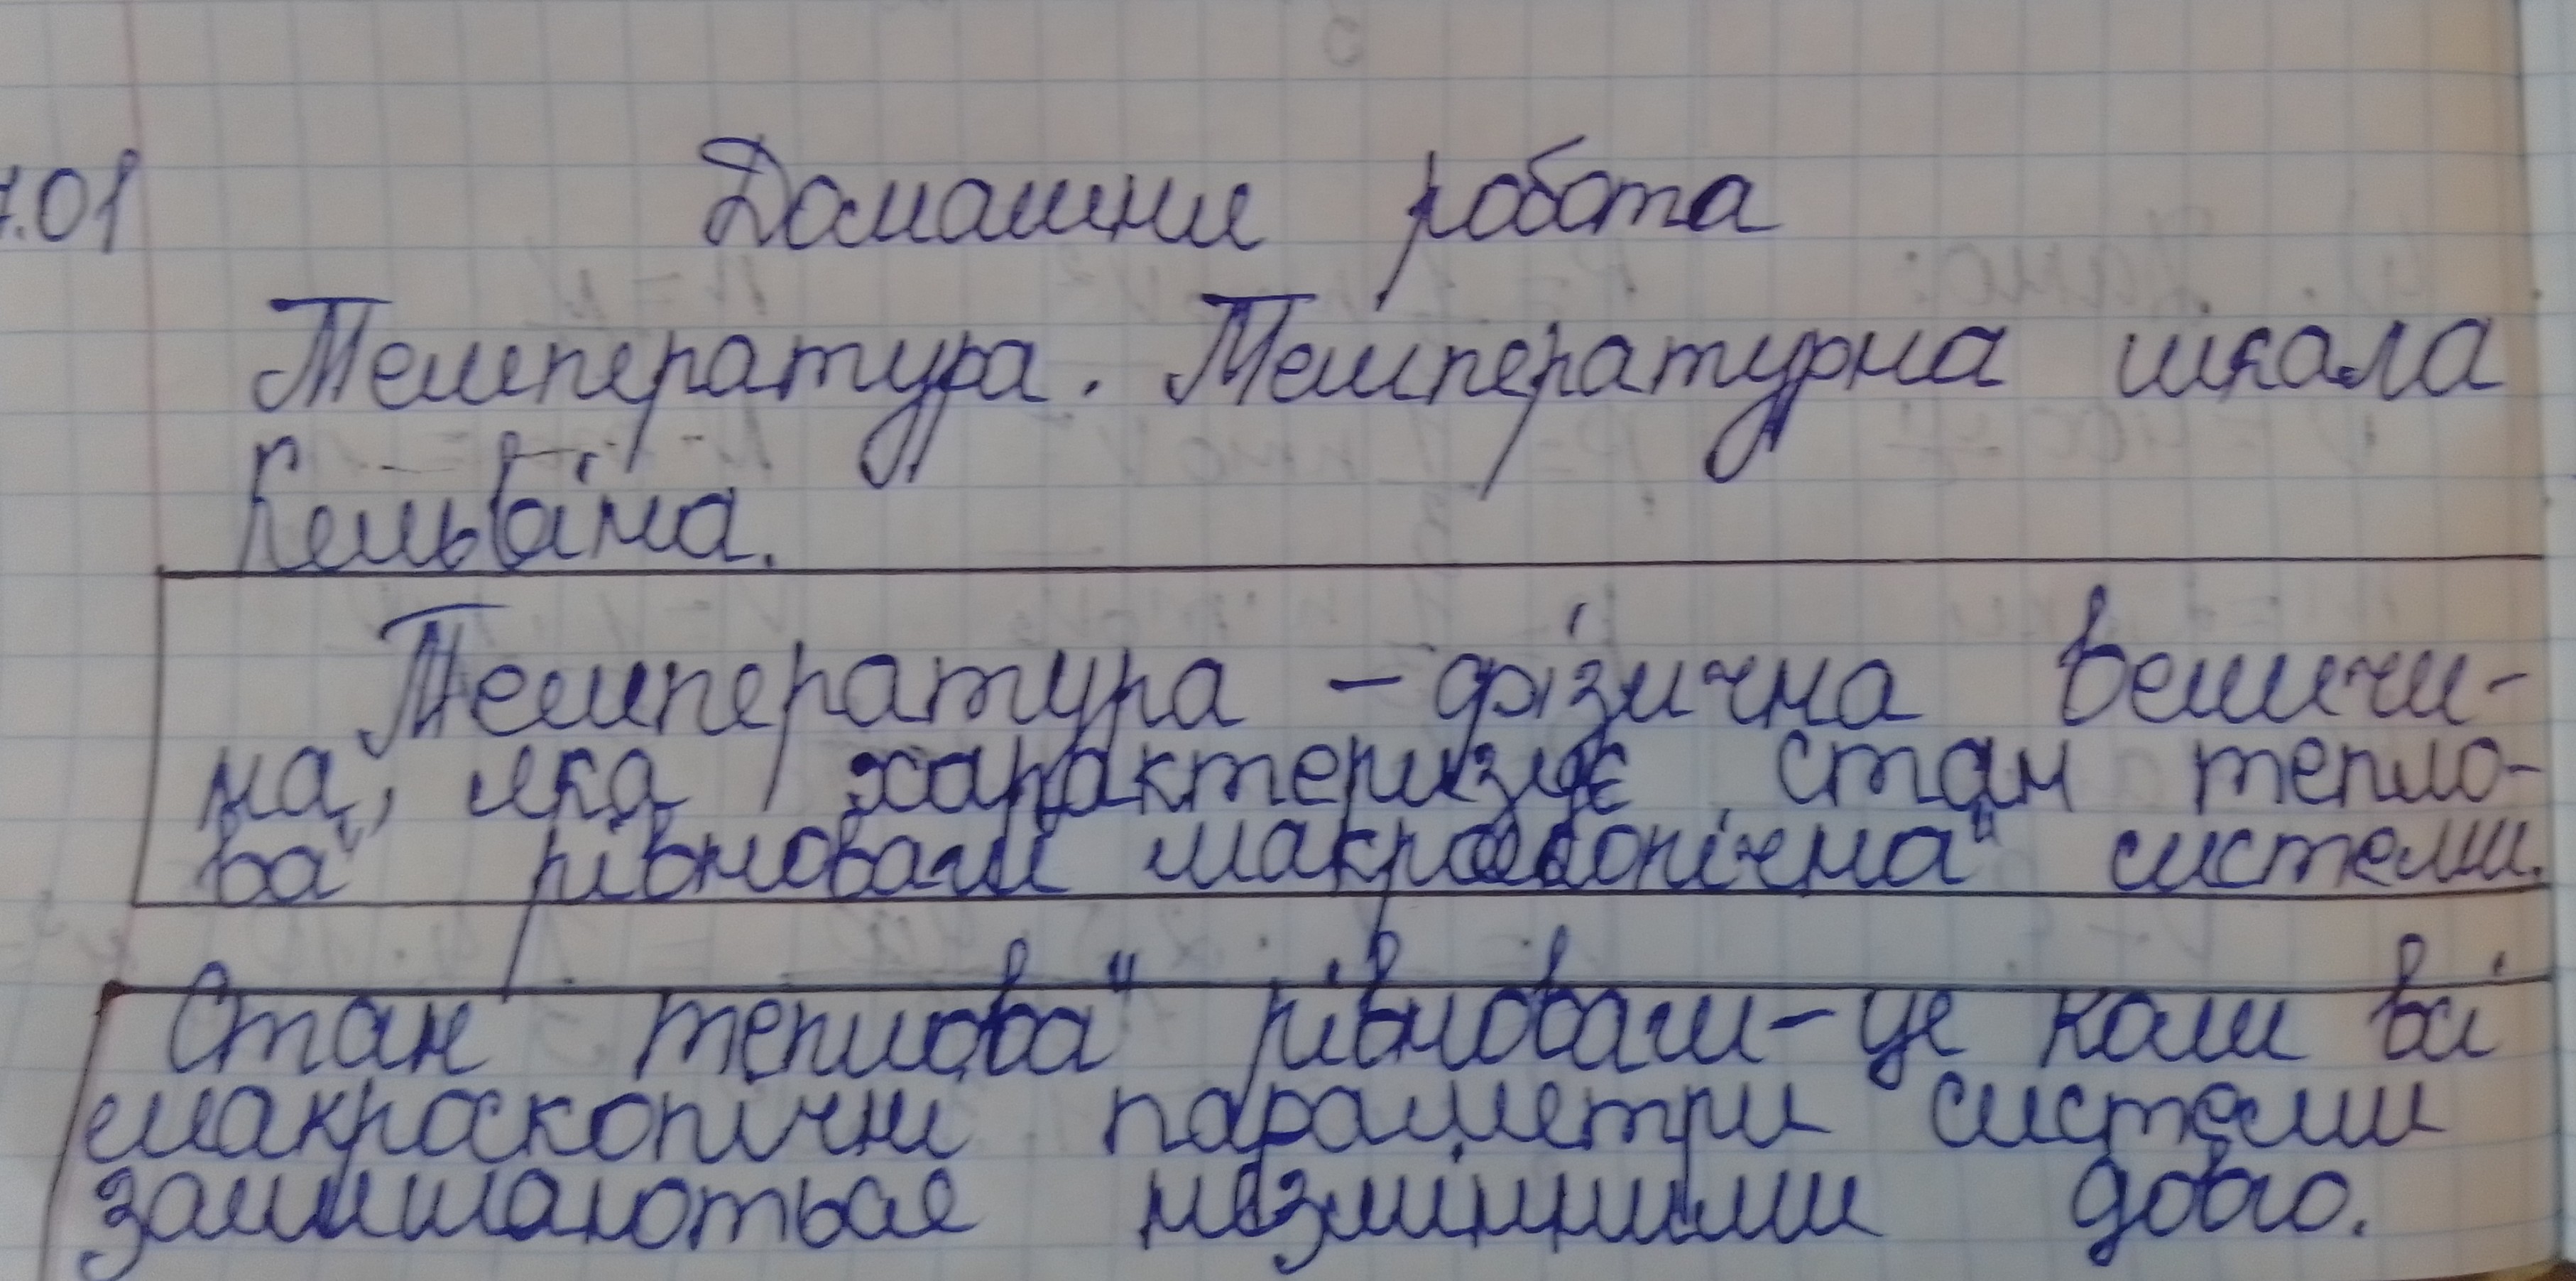 7.01 Домашня робота
Температура. Температурна шкала
Кельвіна.
Температура – фізична величи-
на, яка характеризує стан тепло-
вої рівноваги макроскопічної системи.
Стан теплової рівноваги – це коли всі
макроскопічні параметри системи
залишаються незмінними довго.